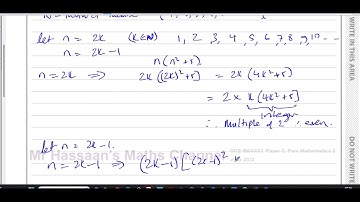 let n = 2k (k∈N) 1, 2, 3, 4, 5, 6, 7, 8, 9, 10 ...
n = 2k-1
n(n²+5)
n=2k ⟹ 2k((2k)²+5) = 2k(4k²+5)
= 2 × k(4k²+5)
integer
∴ Multiple of 2 ∴ even.
let n = 2k-1.
n = 2k-1 ⟹ (2k-1)[(2k-1)² +
Mr Hassaan's Maths Channel
WRITE IN THIS AREA
DO NOT WRITE